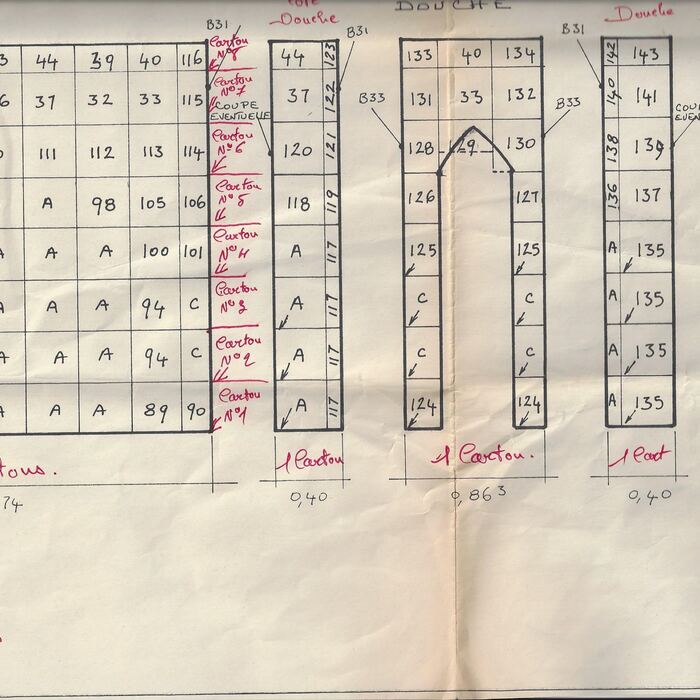 B31
Douche
DOUCHE
Douche
B31
B31
44 39 40 116 Carton
44 123
133 40 134
142 143
37 32 33 115 N°7
COUPE
EVENTUELLE
37 122
B33
131 33 132
B33
140 141
111 112 113 114 Carton
N°6
120 121
128 29 130
138 139
A 98 105 106 Carton
N°5
118 119
126 127
136 137
A A 100 101 Carton
N°4
A 117
125 125
A 135
A A A 94 C Carton
N°3
A 117
C C
A 135
A A A 94 C Carton
N°2
A 117
C C
A 135
A A A 89 90 Carton
N°1
A 117
124 124
A 135
1 Carton
1 Carton.
1 Cart
74
0,40
0,863
0,40